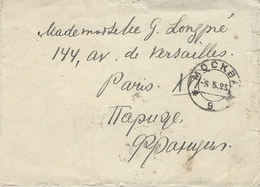 Mademoiselle G. Longpré
144, av. de Versailles.
Paris
Париж.
Франция.
МОСКВА
-8.5.23
9